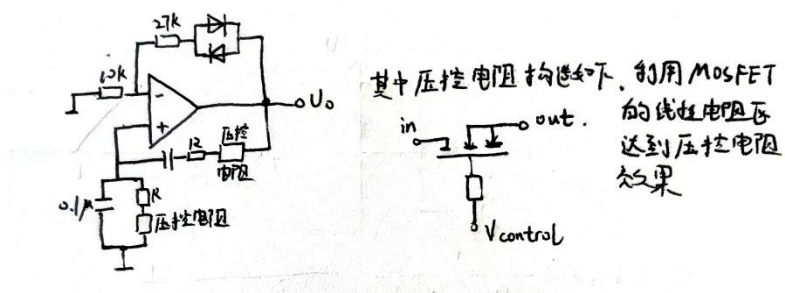 27k
10k
-
+
U₀
R
压控
电阻
0.1μ
R
压控电阻
其中压控电阻构造如下,利用MOSFET
的线性电阻区
达到压控电阻
效果
in
out.
Vcontrol